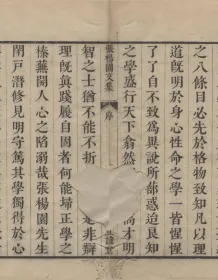 之八條目必先於格物致知凡以理
道既明於身心性命之學一皆惺惺
了了自不致為異說所蔀惑迨良知
之學盛行天下翕然高才明
張楊園文集 序
智之士猶不能不折是非辯
理既真踐履自固者何能掃正學之
榛蕪開人心之陷溺哉張楊園先生
閉戶潛修見明守篤其學獨得於心